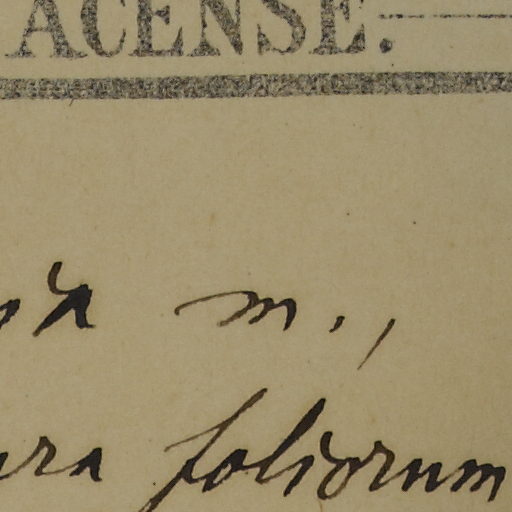 ACENSE.
m.,
ura foliorum